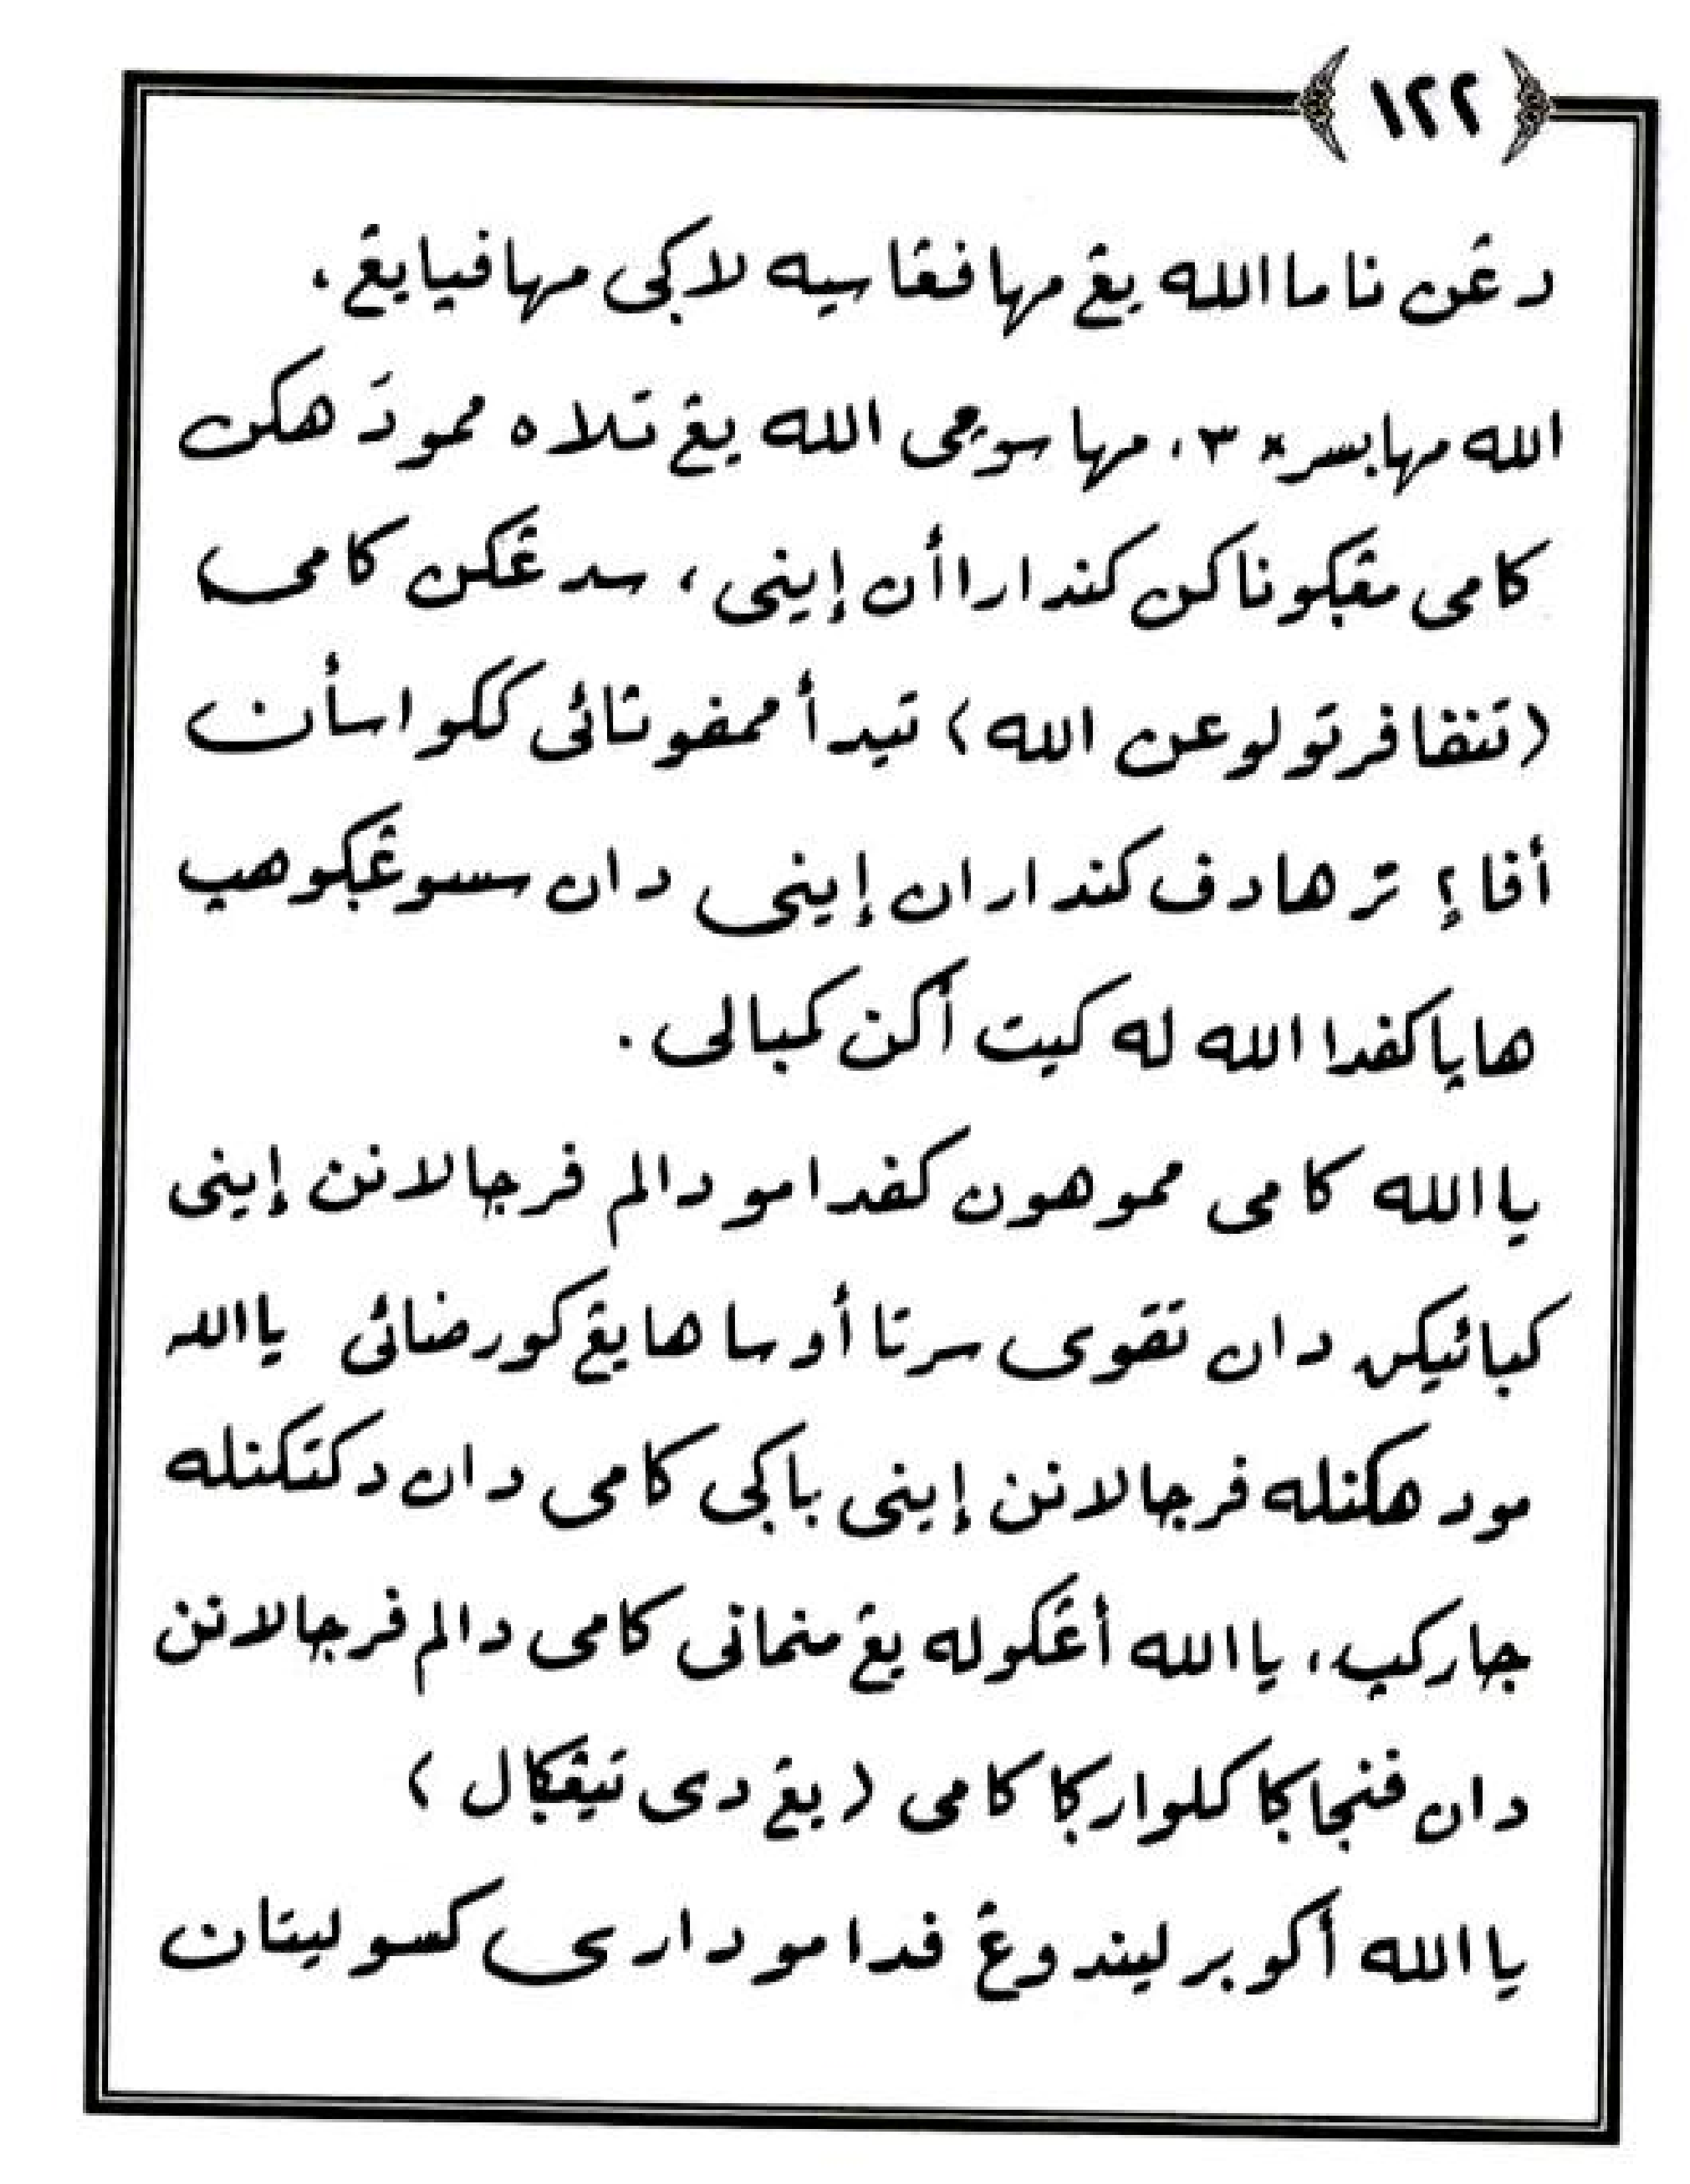 ١٢٢
دڠن ناما الله يڠ مها فڠاسيه لاݢى مها فيايڠ،
الله مها بسر × ٣، مها سوچى الله يڠ تلاه ممودَهكن
كامى مڠݢوناكن كنداراأن إينى، سدڠكن كامى
(تنفا فرتولوعن الله) تيدأ ممفوثائى ككواسأن
أفا٢ ترهادف كنداران إينى دان سسوڠݢوهپ
هاپاكفدا الله له كيت أكن كمبالى.
يا الله كامى مموهون كفدامو دالم فرجالانن إينى
كبائيكن دان تقوى سرتا أوساها يڠ كورضائى يا الله
مودهكنله فرجالانن إينى باݢى كامى دان دكتكنله
جاركپ، يا الله أڠكوله يڠ منمانى كامى دالم فرجالانن
دان فنجاݢا كلوارݢا كامى (يڠ دى تيڠݢال)
يا الله أكو برليندوڠ فدامو دارى كسوليتان